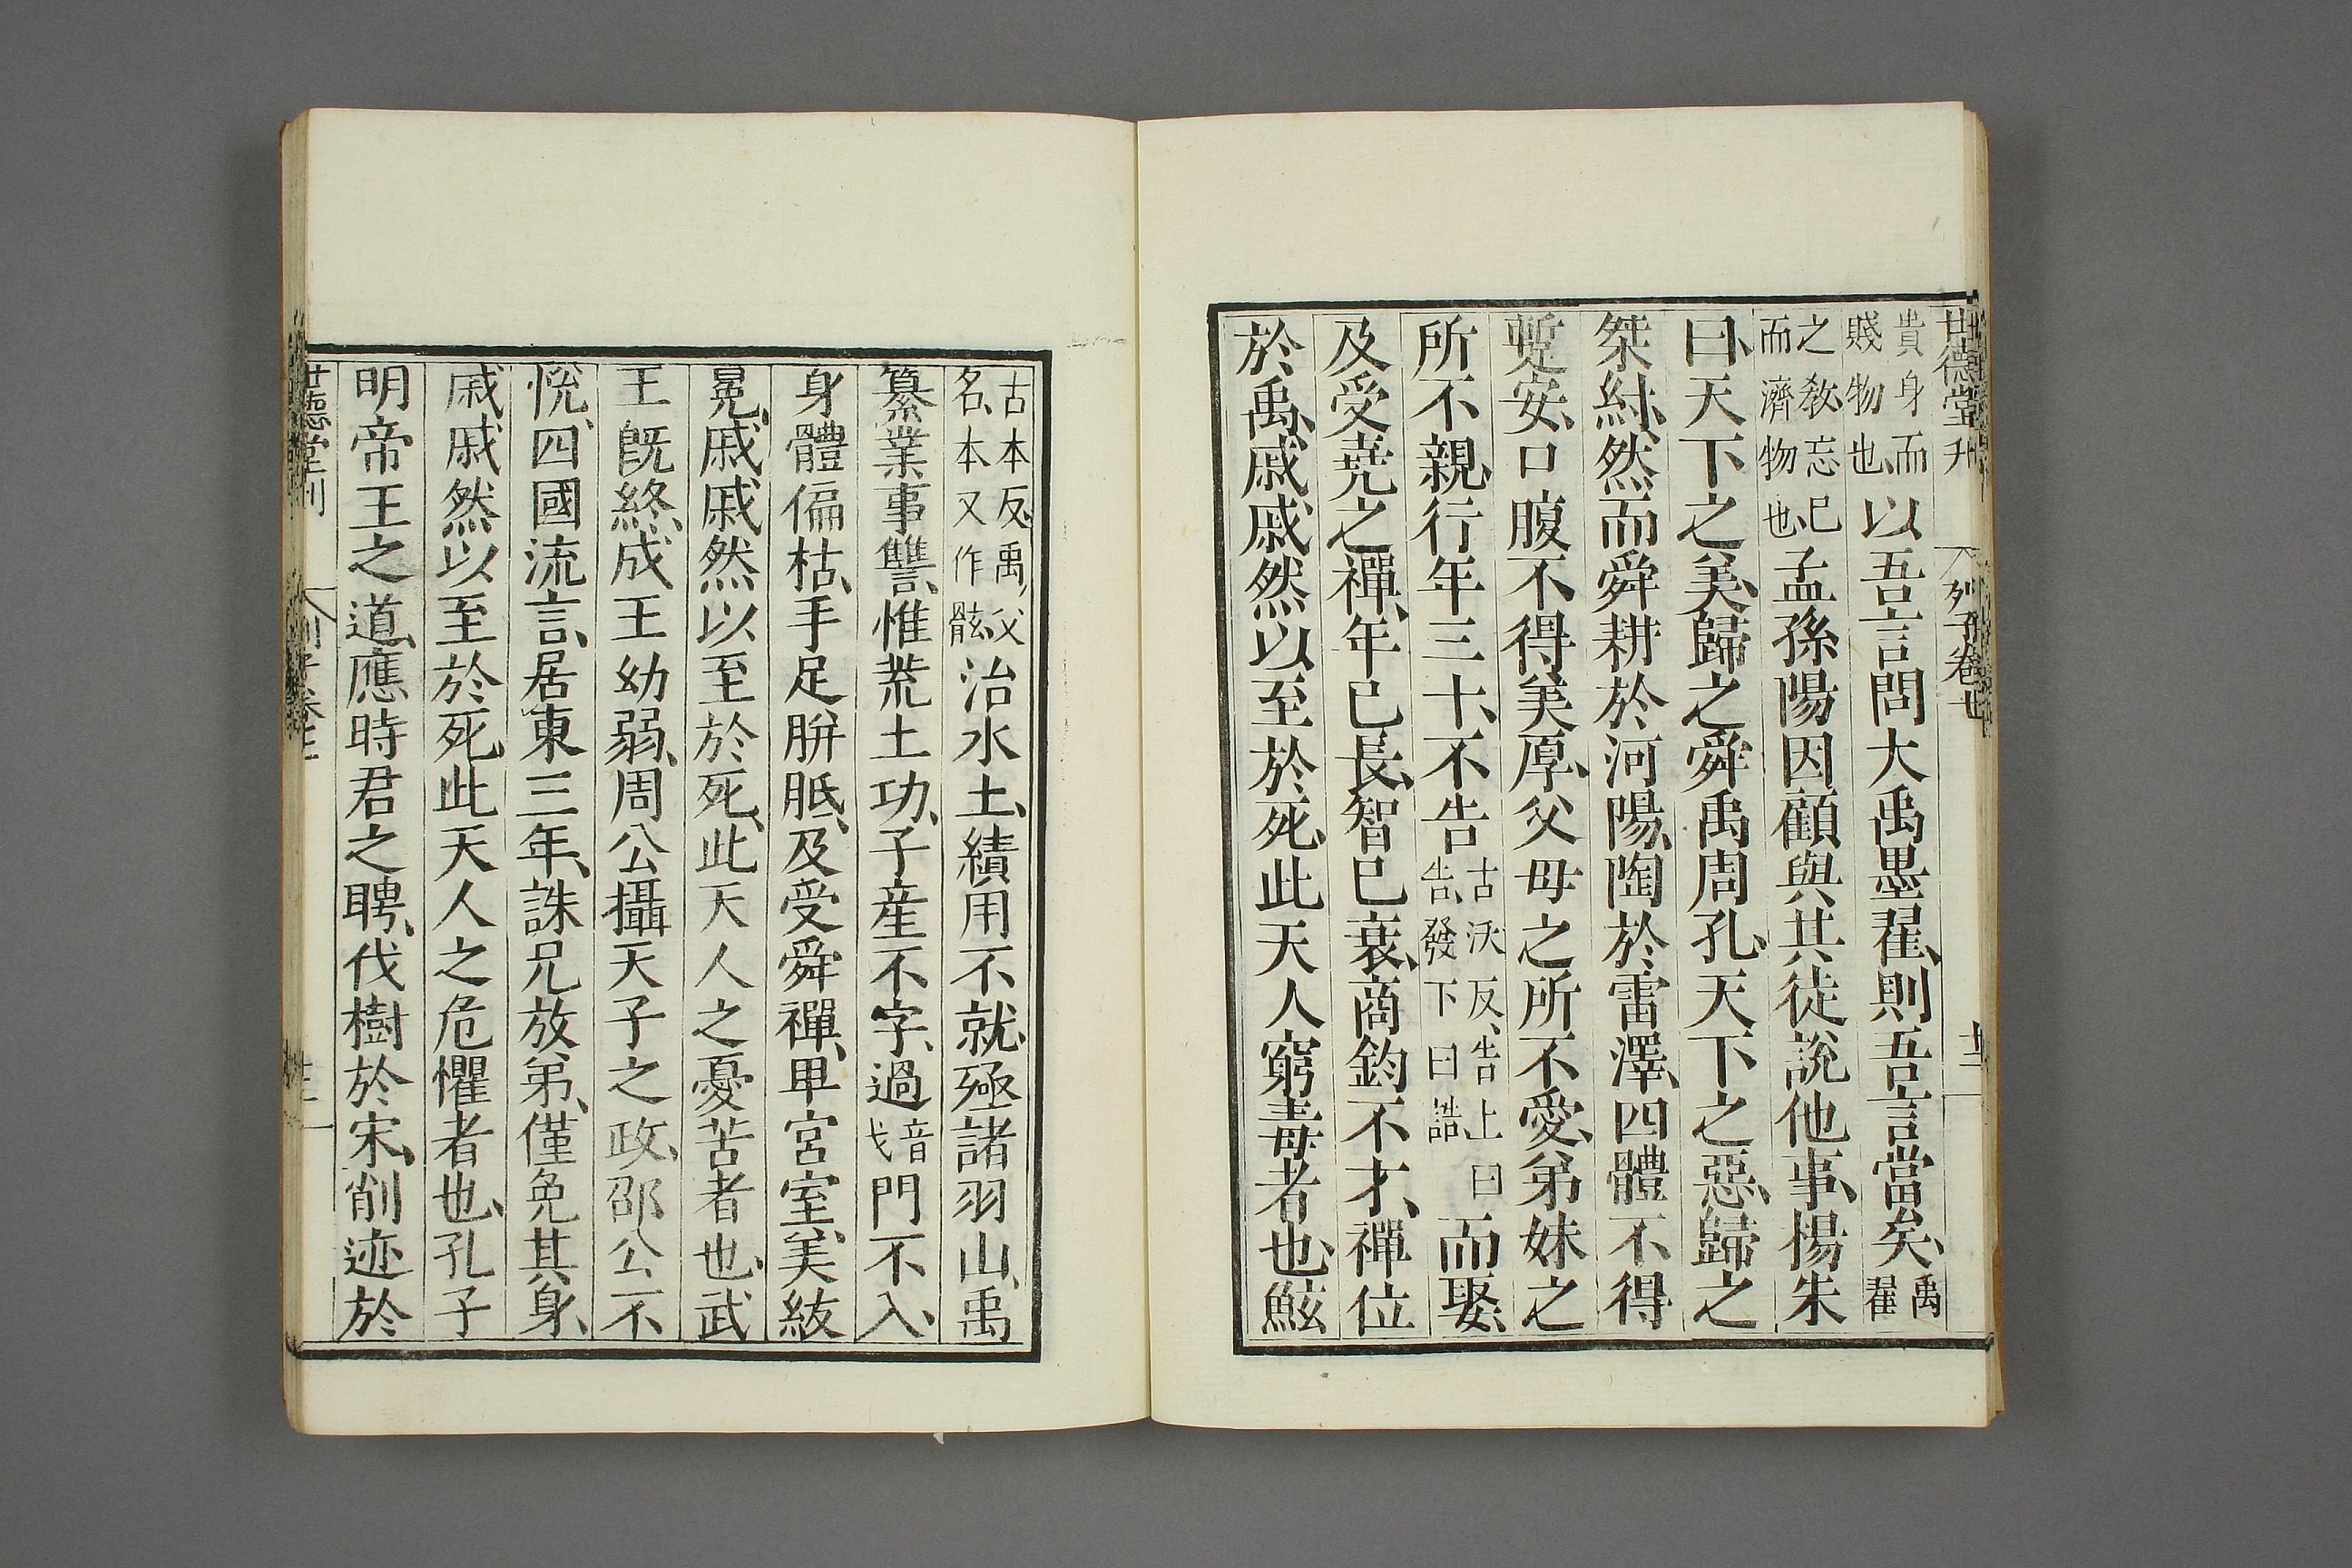 世德堂刊 列子卷七 十二
貴身而賤物也以吾言問大禹墨翟、則吾言當矣、禹翟
之教忘己而濟物也、孟孫陽因顧與其徒說他事、楊朱
曰、天下之美、歸之舜禹周孔、天下之惡、歸之
桀紂、然而舜耕於河陽、陶於雷澤、四體不得
蹔安、口腹不得美厚、父母之所不愛、弟妹之
所不親、行年三十、不告古沃反、告上曰告、發下曰誥而娶、
及受堯之禪、年已長、智已衰、商鈞不才、禪位
於禹、戚戚然以至於死、此天人窮毒者也、鮌
古本反、禹父名、本又作骸、治水土、績用不就、殛諸羽山、禹
纂業事讐、惟荒土功、子産不字、過音戈門不入、
身體偏枯、手足胼胝、及受舜禪、卑宮室、美紱
冕、戚戚然以至於死、此天人之憂苦者也、武
王旣終、成王幼弱、周公攝天子之政、邵公不
悅、四國流言、居東三年、誅兄放弟、僅免其身、
戚戚然以至於死、此天人之危懼者也、孔子
明帝王之道、應時君之聘、伐樹於宋、削迹於
世德堂刊